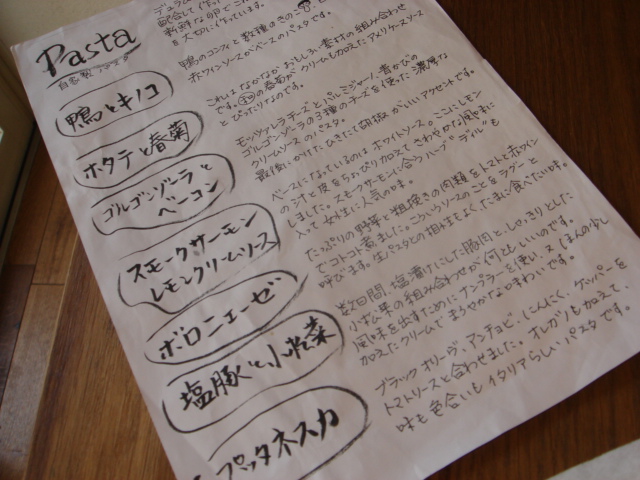 Pasta
自家製
鴨とキノコ
鴨のコンフィと数種のきのこ
赤ワインソースがベースのパスタです。
ホタテと春菊
これはなかなかおもしろい素材の組み合わせ
です。
クリームも加えたアメリケーヌソース
とぴったりなのです。
ゴルゴンゾーラと
ベーコン
モッツァレラチーズとパルミジャーノ、青かびの
ゴルゴンゾーラの3種のチーズを使った濃厚な
クリームソースのパスタ。
最後にかけたひきたて胡椒がいいアクセントです。
スモークサーモン
レモンクリームソース
ベースになっているのはホワイトソース。ここにレモン
の汁と皮をちょっぴり加えてさわやかな風味に
しました。スモークサーモンに合うハーブ"ディル"も
入って女性に人気の味。
ボロニェーゼ
たっぷりの野菜と粗挽きの肉類をトマトと赤ワイン
でコトコト煮ました。こういうソースのことをラグーと
呼びます。生パスタとの相性もよくたまに食べたい味。
塩豚と小松菜
数日間、塩漬けにした豚肉と、しゃきっとした
小松菜の組み合わせが何ともいいのです。
風味を出すためにナンプラーを使い、又ほんの少し
加えたクリームでまろやかな味わいです。
プッタネスカ
ブラックオリーヴ、アンチョビ、にんにく、ケッパーを
トマトソースと合わせました。オレガノも加えて、
味も色合いもイタリアらしいパスタです。